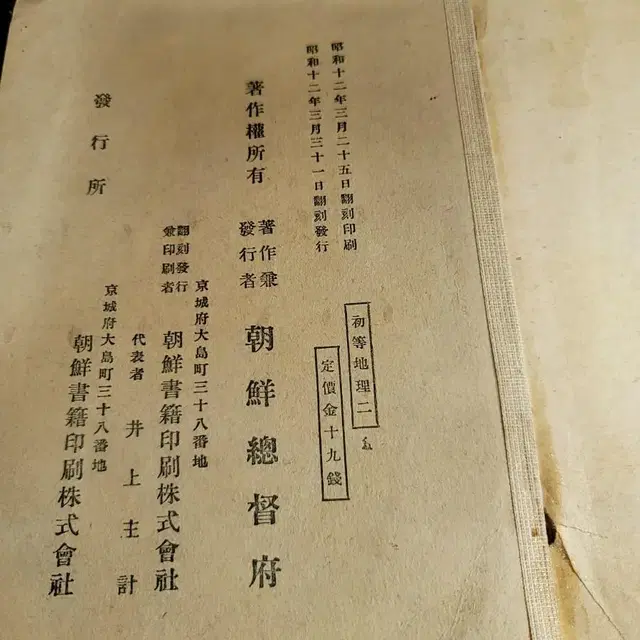 昭和十二年三月二十五日翻刻印刷
昭和十二年三月三十一日翻刻發行
初等地理二
定價金十九錢
著作權所有
著作兼
發行者
朝鮮總督府
京城府大島町三十八番地
翻刻發行
兼印刷者
朝鮮書籍印刷株式會社
代表者 井上主計
發行所
京城府大島町三十八番地
朝鮮書籍印刷株式會社